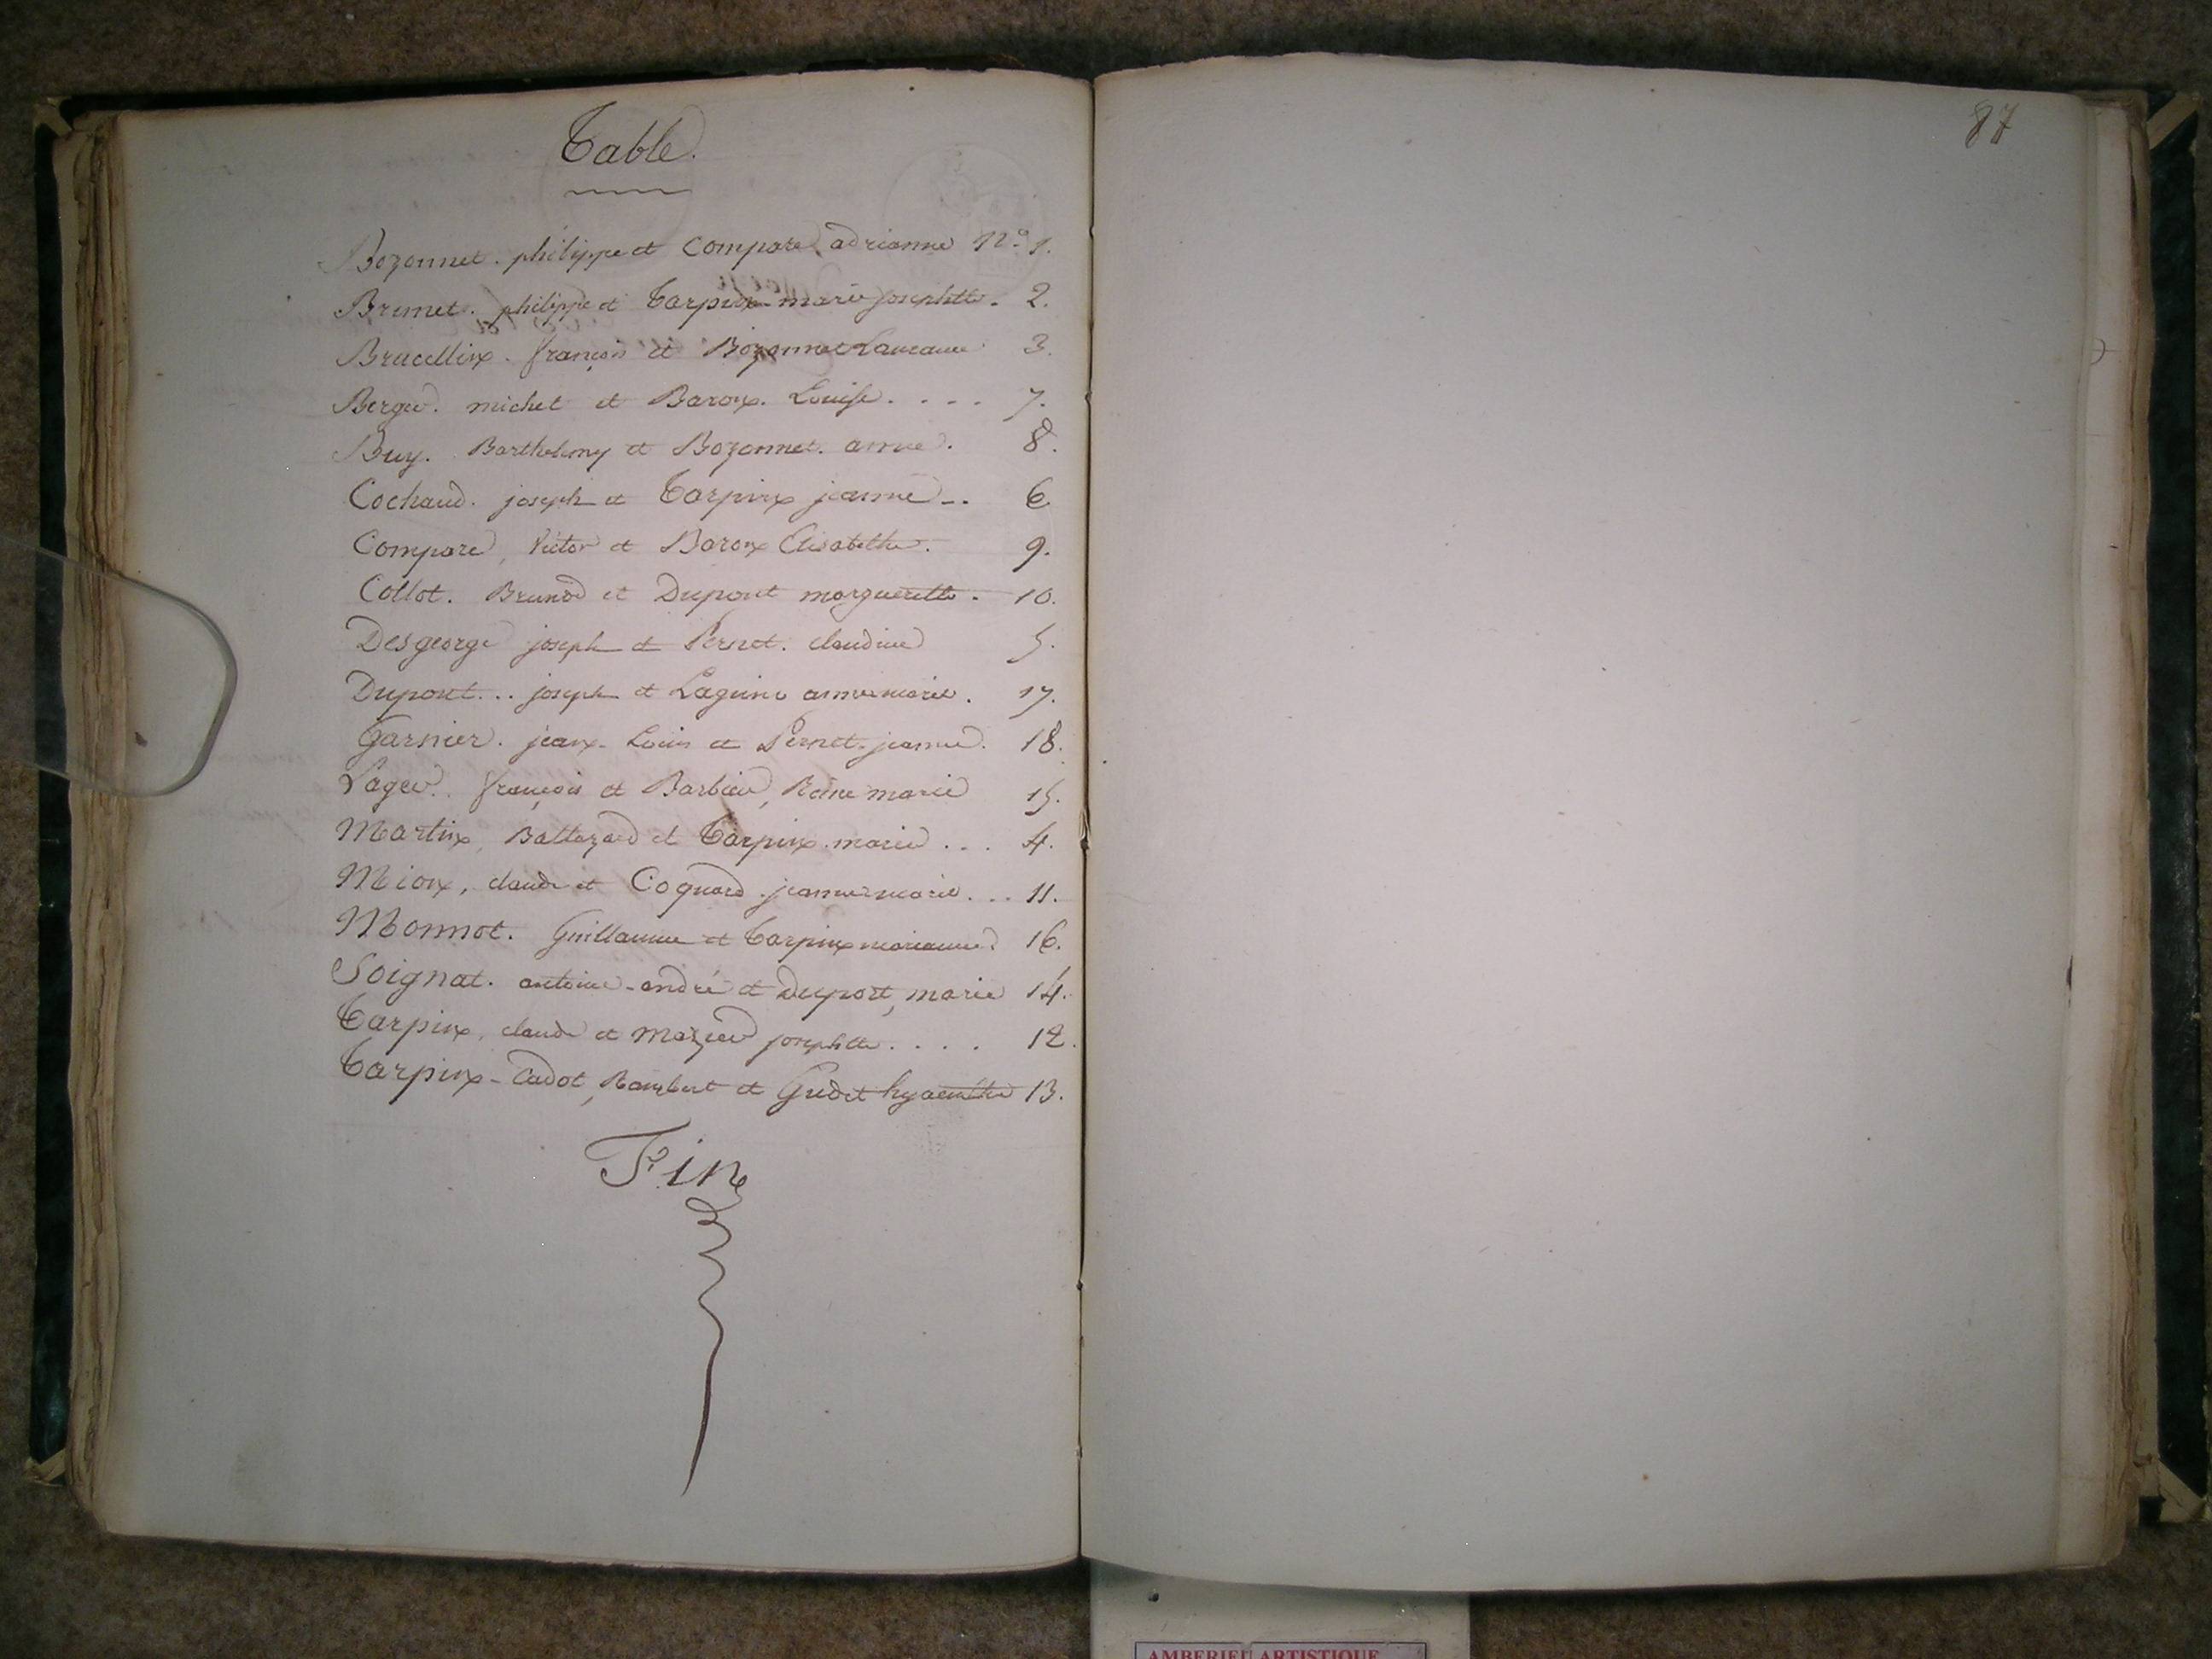 Table.
87
Bozonnet. philippe et Compare, adrianne N.° 1.
Brunet. philippe et Tarpin marie josephtte. 2.
Brucellin. françois et Bozonnet Laurance 3.
Berger. michel et Baron. Louise. . . . . 7.
Buy. Barthelemy et Bozonnet. anne. 8.
Cochaud. joseph et Tarpin jeanne . . 6.
Compare, Victor et Baron Elisabethe. 9.
Collot. Brunod et Dupont margueritte. 10.
Desgeorge joseph et Pernet. claudine 5.
Dupont. . . joseph et Laguine anne marie. 17.
Garnier. jean. Louis et Pernet. jeanne. 18.
Lager. françois et Barbier, Reine marie 15.
Martin, Baltazard et Tarpin. marie . . . 4.
Mion, claude et Coquard. jeanne marie. . . . 11.
Monnot. Guillaume et Tarpin marianne 16.
Soignat. antoine-andré et Duport, marie 14.
Tarpin, claude et Mazuer josephtte. . . . . 12.
Tarpin-Cadot, Rambert et Gudet hyacinthe 13.
Fin
AMBERIEU ARTISTIQUE